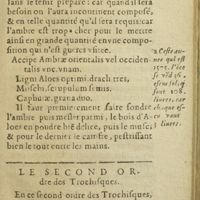 lans le tenir prepare: car quand il sera
besoin on l'aura incontinent composé,
& en telle quantité qu'il sera requis: car
l'ambre est trop cher pour le mettre
ainsi en grande quantité en vne compo-
sition qui n'est guerres vsitee.
Accipe Ambræ orientalis vel occiden-
talis vnc. vnam.
Ligni Aloes optimi drach. tres,
Moschi, scrupulum semis.
Caphuræ, grana duo.
Il faut premierement faire fondre
l'ambre puis mesler parmi, le bois d'A-
loes en poudre bié deliée, puis le musc,
& pour le dernier le camfre, pestrissant
bien le tout entre les mains.
LE SECOND OR-
dre des Trochisques.
En ce second ordre des Trochisques,